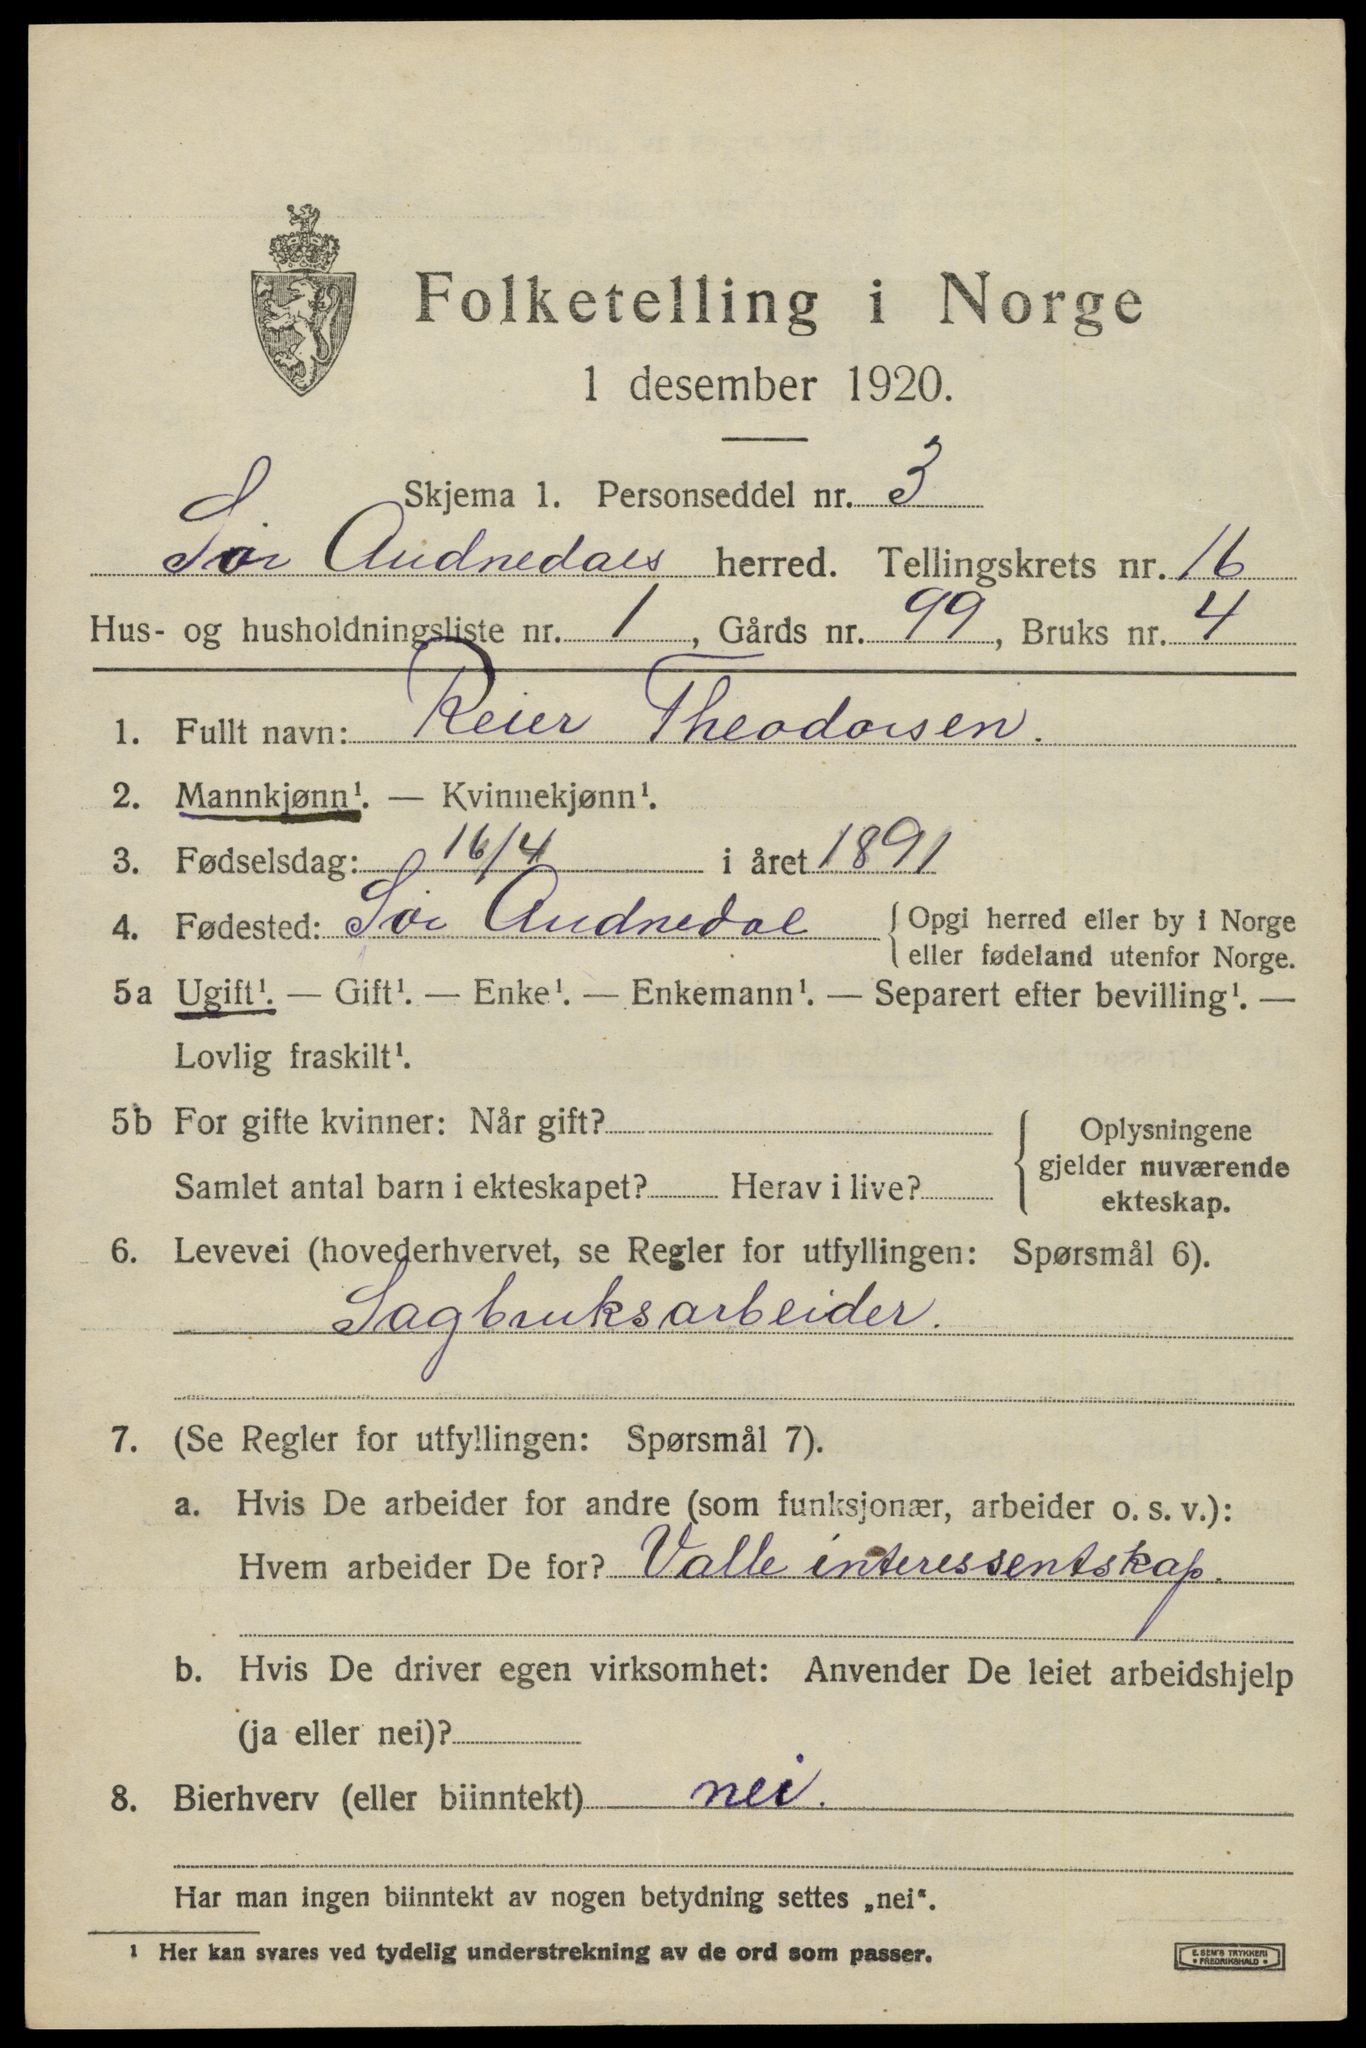 Folketelling i Norge
1 desember 1920.
Skjema 1. Personseddel nr. 3
Sør Audnedals herred. Tellingskrets nr. 16
Hus- og husholdningsliste nr. 1, Gårds nr. 99, Bruks nr. 4
1. Fullt navn: Reier Theodorsen.
2. Mannkjønn¹. — Kvinnekjønn¹.
3. Fødselsdag: 16/4 i året 1891
4. Fødested: Sør Audnedal { Opgi herred eller by i Norge
eller fødeland utenfor Norge.
5a Ugift¹. — Gift¹. — Enke¹. — Enkemann¹. — Separert efter bevilling¹. —
Lovlig fraskilt¹.
5b For gifte kvinner: Når gift?
Samlet antal barn i ekteskapet? Herav i live?
{ Oplysningene
gjelder nuværende
ekteskap.
6. Levevei (hovederhvervet, se Regler for utfyllingen: Spørsmål 6).
Sagbruksarbeider.
7. (Se Regler for utfyllingen: Spørsmål 7).
a. Hvis De arbeider for andre (som funksjonær, arbeider o. s. v.):
Hvem arbeider De for? Valle interessentskap.
b. Hvis De driver egen virksomhet: Anvender De leiet arbeidshjelp
(ja eller nei)?
8. Bierhverv (eller biinntekt) nei.
Har man ingen biinntekt av nogen betydning settes „nei“.
¹ Her kan svares ved tydelig understrekning av de ord som passer.
E. SEM'S TRYKKERI
* FREDRIKSHALD *